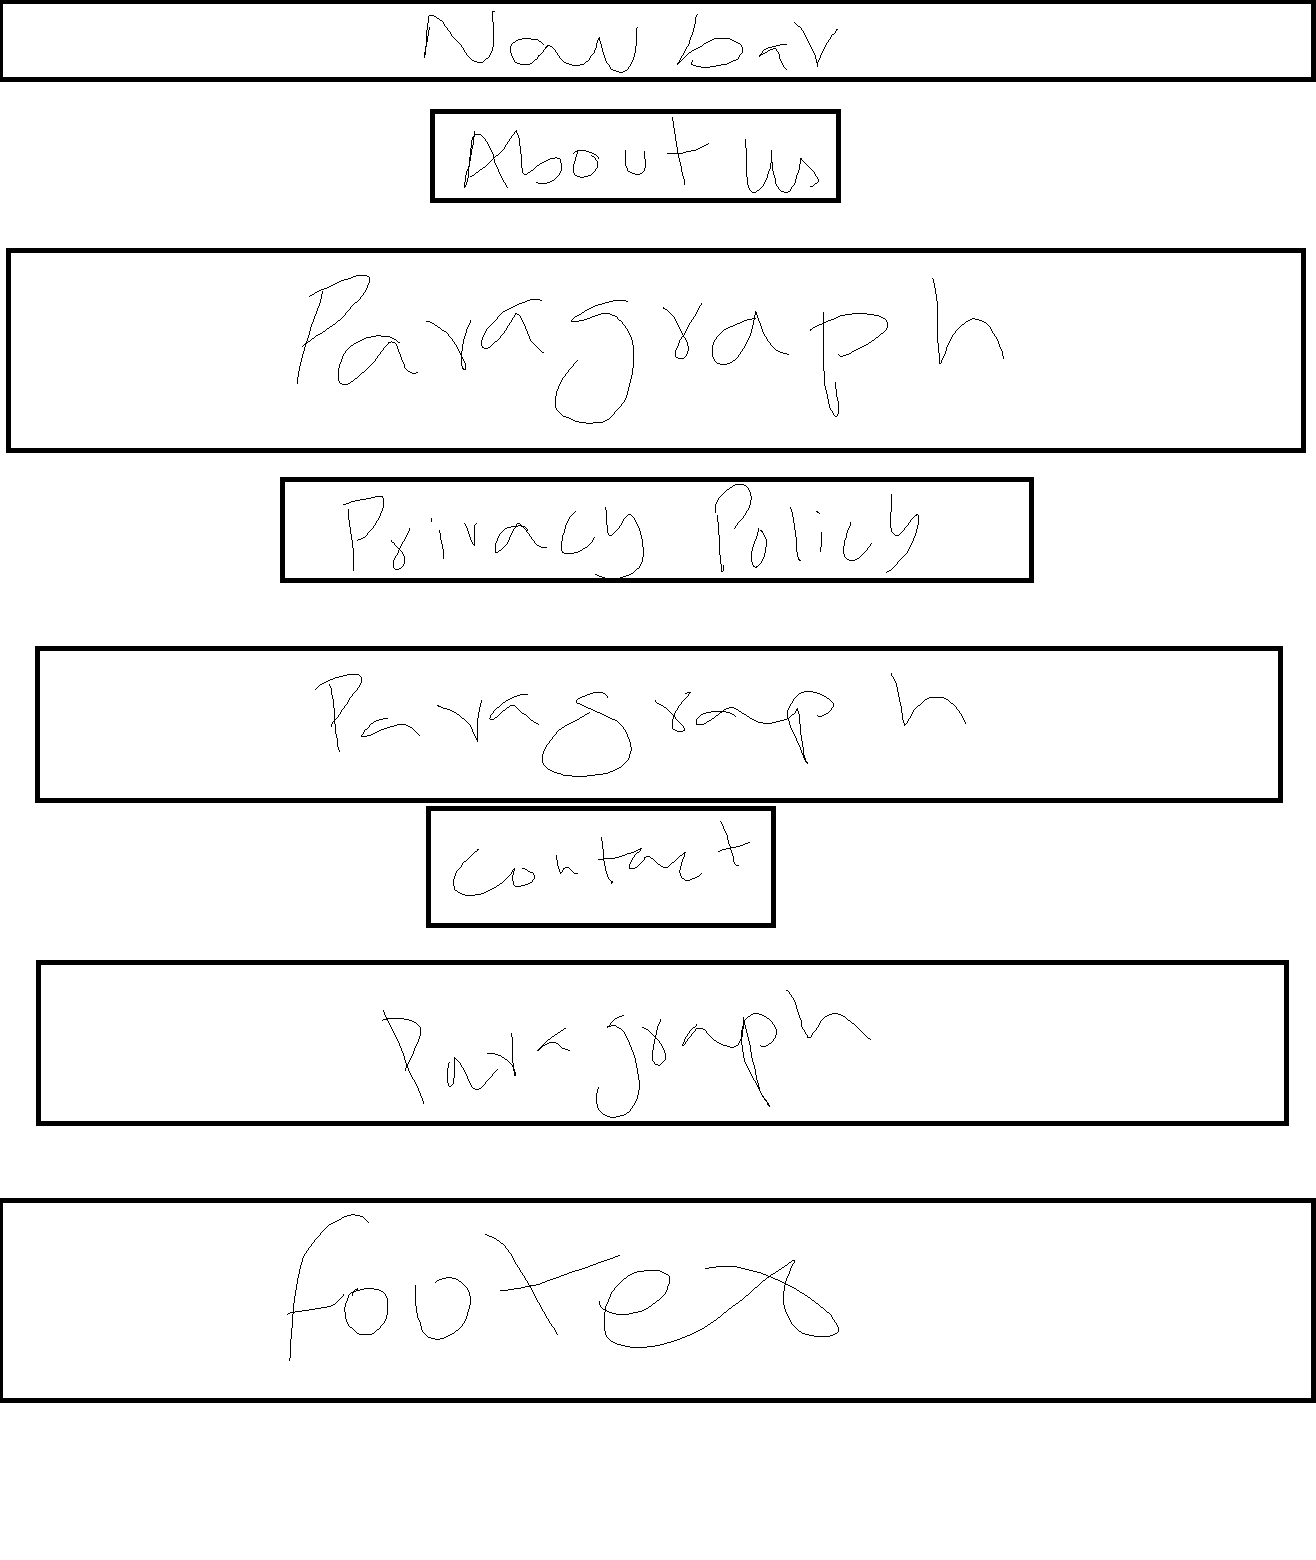 Navbar
About Us
Paragraph
Privacy Policy
Paragraph
Contact
Paragraph
Footer